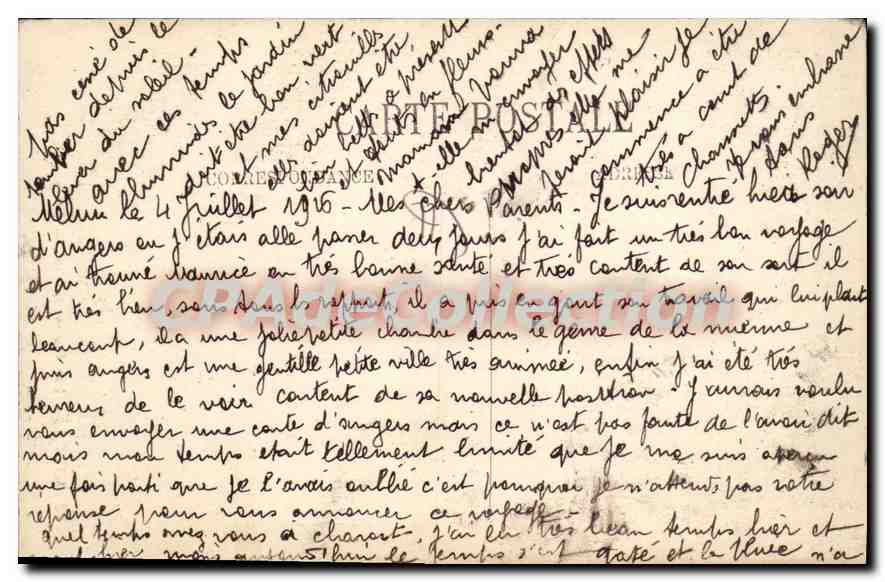 CARTE POSTALE
CORRESPONDANCE
ADRESSE
Melun le 4 Juillet 1916 - Mes chers Parents - Je suis rentré hier soir
d'angers ou j'étais allé passer deux jours j'ai fait un très bon voyage
et ai trouvé Maurice en très bonne santé et très content de son sort il
est très bien, sous tous les rapports, il a pris en gout son travail qui lui plait
beaucoup, il a une jolie petite chambre dans le genre de la mienne et
puis angers est une gentille petite ville très animée, enfin j'ai été très
heureux de le voir content de sa nouvelle position. J'aurais voulu
vous envoyer une carte d'angers mais ce n'est pas faute de l'avoir dit
mais mon temps était tellement limité que je me suis aperçu
une fois parti que je l'avais oublié c'est pourquoi je n'attends pas votre
réponse pour vous annoncer ce voyage
quel temps avez vous à j'ai eu très beau temps hier et
hier mais aujourd'hui le temps s'est gaté et la pluie n'a
pas cessé de
tomber depuis le
lever du soleil -
avec ces temps
humides le jardin
doit être bien vert
et mes citrouilles
elles doivent être
bien belles à présent
et en fleurs.
maman pourra
elle m'envoyer
bientot des effets
elle me
ferait plaisir je
commence a être
très a court de
chaussettes.
Je vous embrasse
tous
Roger
CPAdeCollection